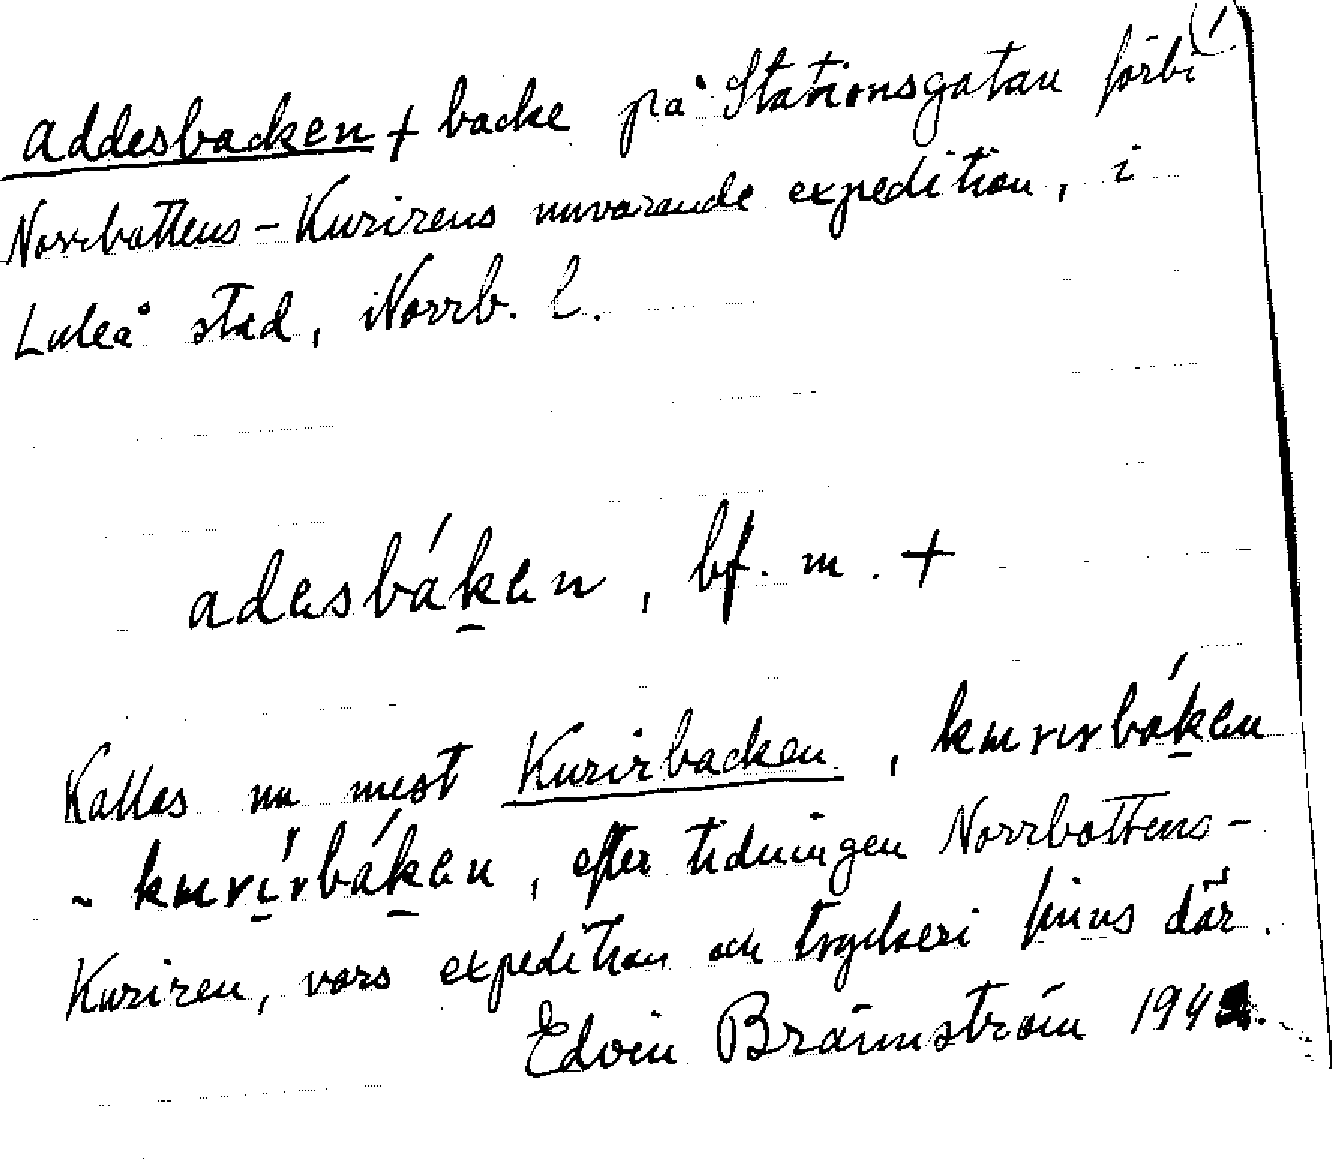 (1
Addesbacken + backe på Stationsgatan förbi
Norrbottens-Kurirens nuvarande expedition, i
Luleå stad, Norrb. l.
adesbáken, bf. m. +
Kallas nu mest Kurirbacken, kurirbáken
~ kurírbáken, efter tidningen Norrbottens-
Kuriren, vars expedition och tryckeri finns där.
Edvin Brännström 194